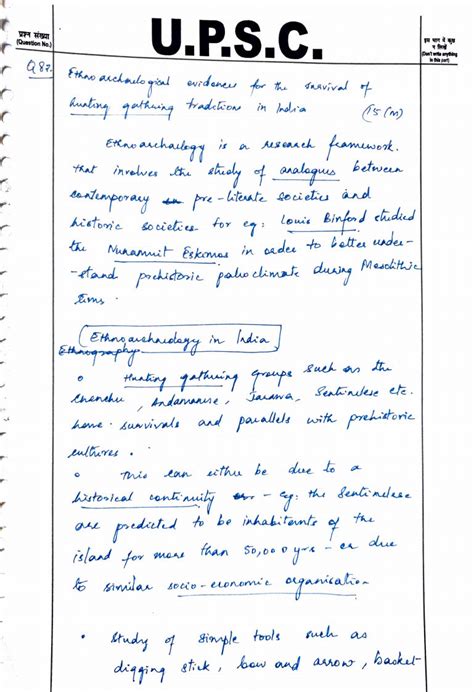 प्रश्न संख्या
(Question No.)
U.P.S.C.
इस भाग में कुछ
न लिखें
(Don't write anything
in this part)
Q8?
Ethnoarchaeological evidences for the survival of
hunting gathering traditions in India (15 (M)
Ethnoarchaeology is a research framework.
that involves the study of analogues between
contemporary pre-literate societies and
historic societies for eg: Louis Binford studied
the Nunamuit Eskimos in order to better under-
-stand prehistoric paleoclimate during Mesolithic
tims.
Ethnoarchaeology in India
Ethnography-
• Hunting gathering groups such as the
Chenchu, Andamanese, Jarawa, Sentinelese etc.
have survivals and parallels with prehistoric
cultures.
• This can either be due to a
historical continuity - eg: the Sentinelese
are predicted to be inhabitants of the
island for more than 50,000 yrs - or due
to similar socio-economic organisation
• Study of simple tools such as
digging stick, bow and arrow, basket